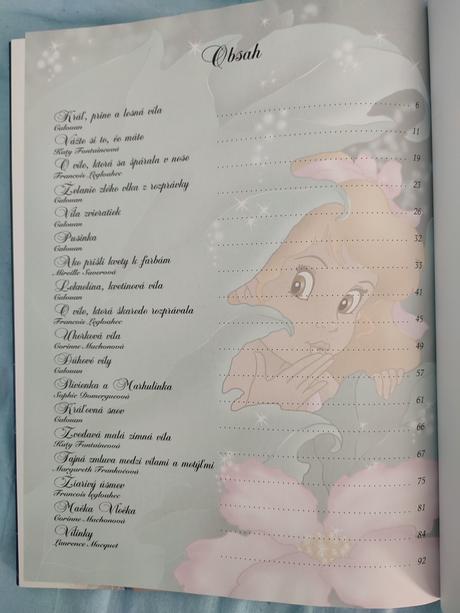 Obsah
Kráľ, princ a lesná víla ........ 6
Calouan
Vážte si to, čo máte ........ 11
Katy Fontaineová
O víle, ktorá sa špárala v nose ........ 19
Francois Legloahec
Želanie zlého vlka z rozprávky ........ 23
Calouan
Víla zvieratiek ........ 26
Calouan
Pusinka ........ 32
Calouan
Ako prišli kvety k farbám ........ 33
Mireille Saverová
Leknelína, kvetinová víla ........ 41
Calouan
O víle, ktorá škaredo rozprávala ........ 45
Francois Legloahec
Uhorková víla ........ 49
Corinne Machonová
Dúhové víly ........ 57
Calouan
Slivienka a Marhulinka ........ 61
Sophie Domergueová
Kráľovná snov ........ 66
Calouan
Zvedavá malá zimná víla ........ 67
Katy Fontaineová
Tajná zmluva medzi vílami a motýľmi ........ 75
Margareth
Žiarivý úsmev ........ 81
Francois Legloahec
Mačka Vločka ........ 84
Corinne Machonová
Vílinky ........ 92
Laurence Macquet